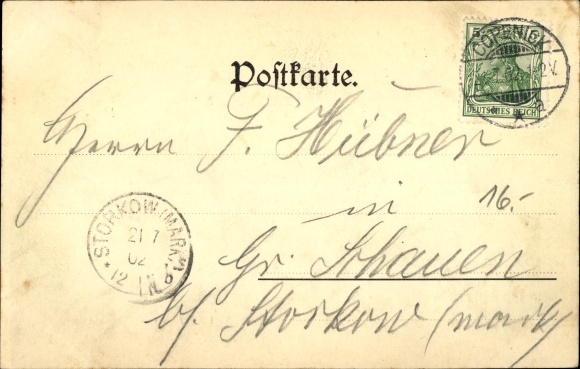 Postkarte.
5
DEUTSCHES REICH
CÖPENICK
Herrn F. Hübner
16.-
in
Gr. Schauen
b/ Storkow (mark)
STORKOW (MARK)
21 7
02
12 1 N.